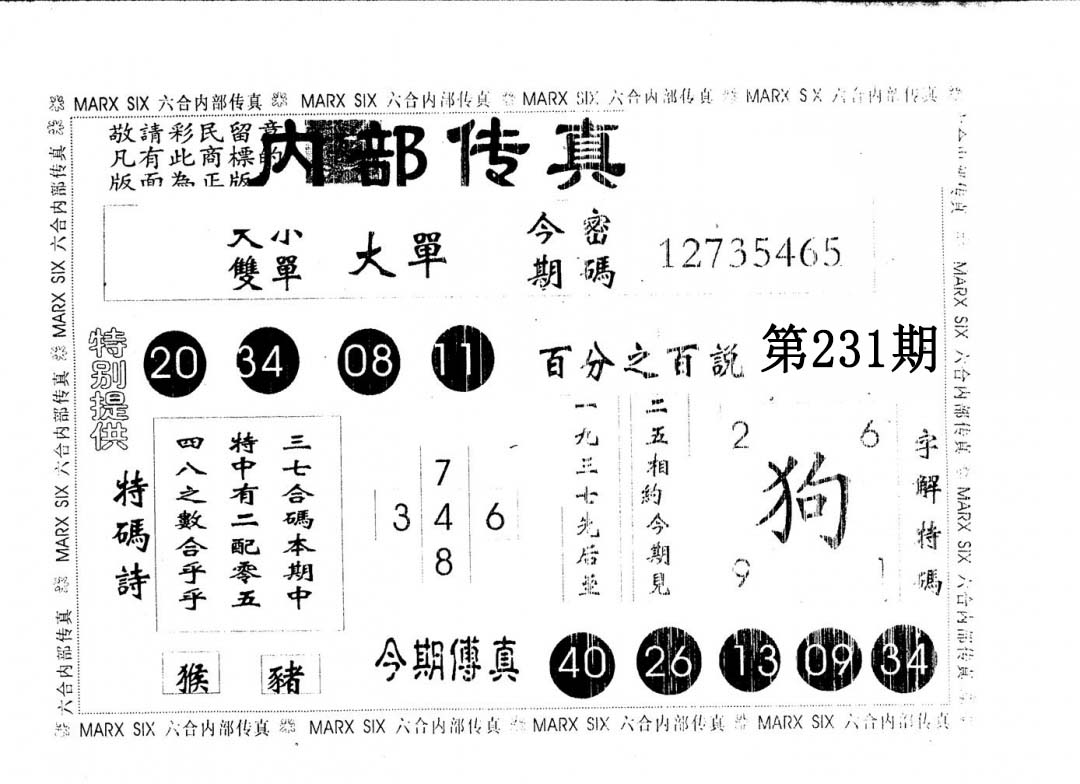 MARX SIX 六合内部传真 MARX SIX 六合内部传真 MARX SIX 六合内部传真 MARX SIX 六合内部传真
敬請彩民留意
凡有此商標的
版面為正版
内部传真
大小
雙單
大單
今期
密碼
12735465
特别提供
20 34 08 11
百分之百説
第231期
特碼詩
三七合碼本期中
特中有二配零五
四八之數合乎乎
7
3 4 6
8
二五相約今期見
一九三七先后並
2 6
狗
9 1
字解特碼
猴 豬
今期傳真
40 26 13 09 34
MARX SIX 六合内部传真 MARX SIX 六合内部传真 MARX SIX 六合内部传真
MARX SIX 六合内部传真 MARX SIX 六合内部传真
MARX SIX 六合内部传真 MARX SIX 六合内部传真 MARX SIX 六合内部传真 MARX SIX 六合内部传真